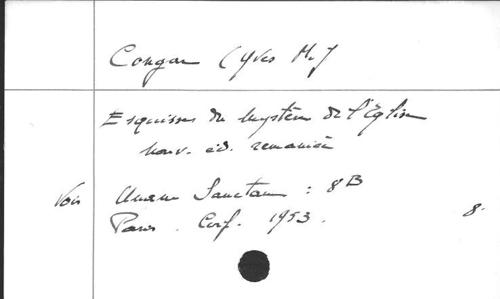 Congar (Yves M.)
Esquisses du Mystère de l'Église
nouv. éd. remaniée
Voir Unam Sanctam : 8B
Paris . Cerf. 1953. 8.